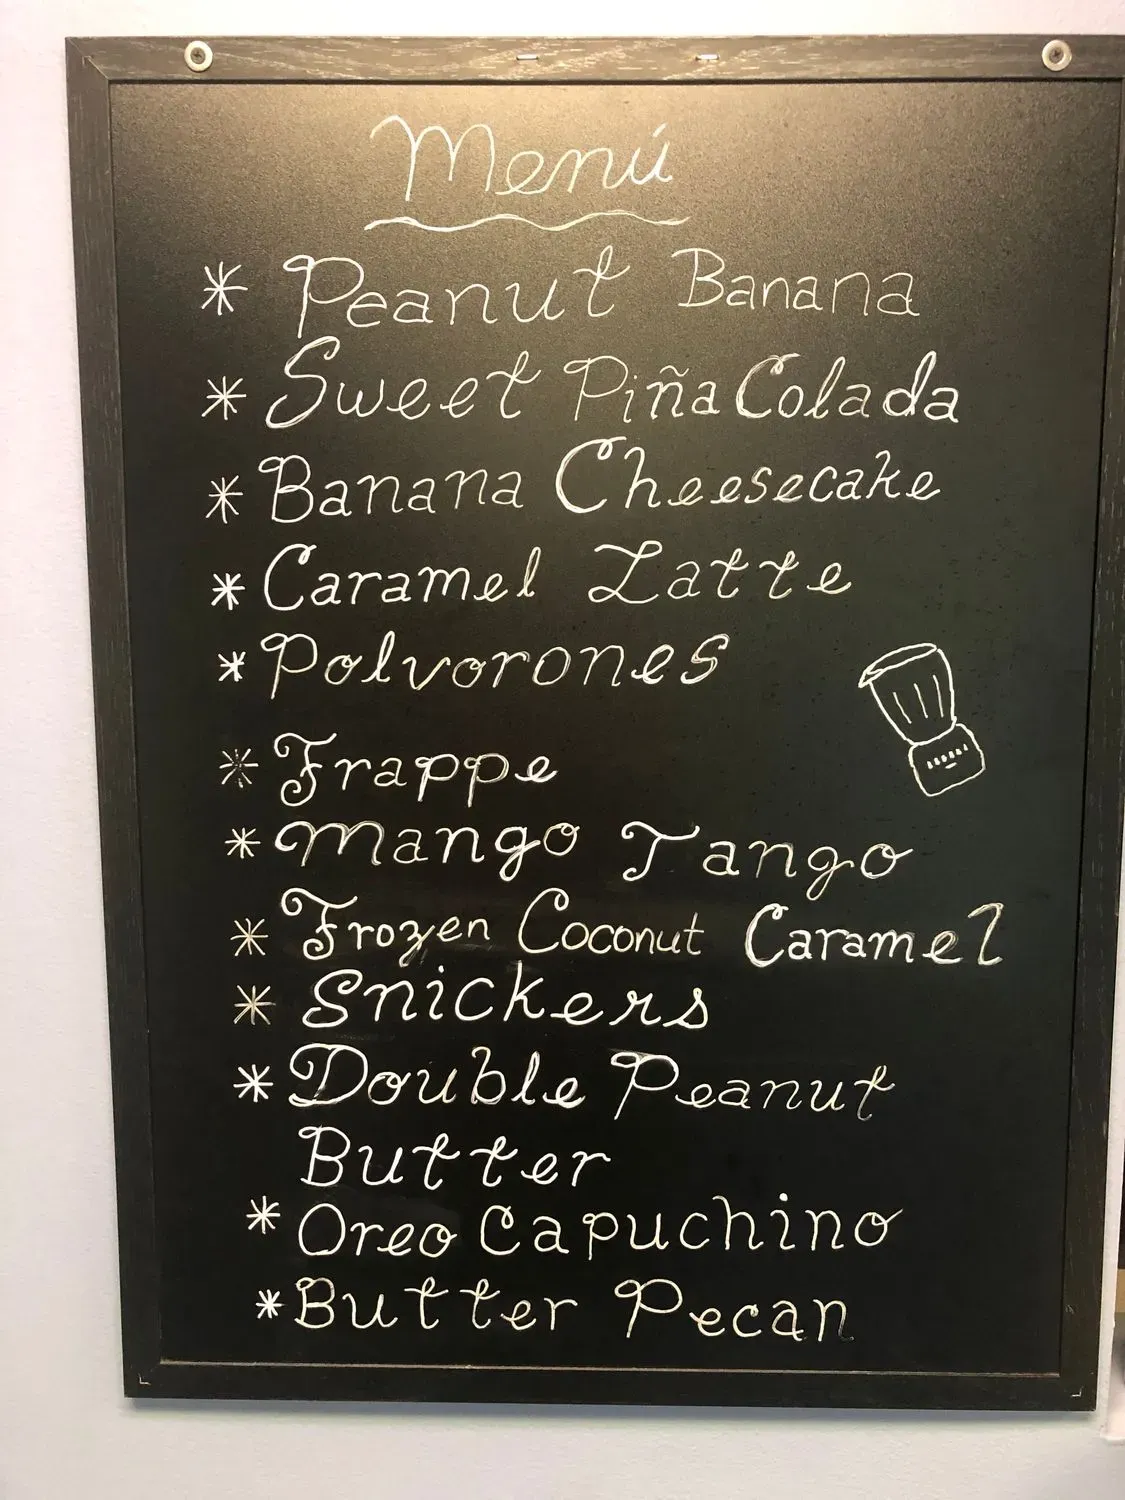 Menú
* Peanut Banana
* Sweet Piña Colada
* Banana Cheesecake
* Caramel Latte
* Polvorones
* Frappe
* Mango Tango
* Frozen Coconut Caramel
* Snickers
* Double Peanut
Butter
* Oreo Capuchino
* Butter Pecan